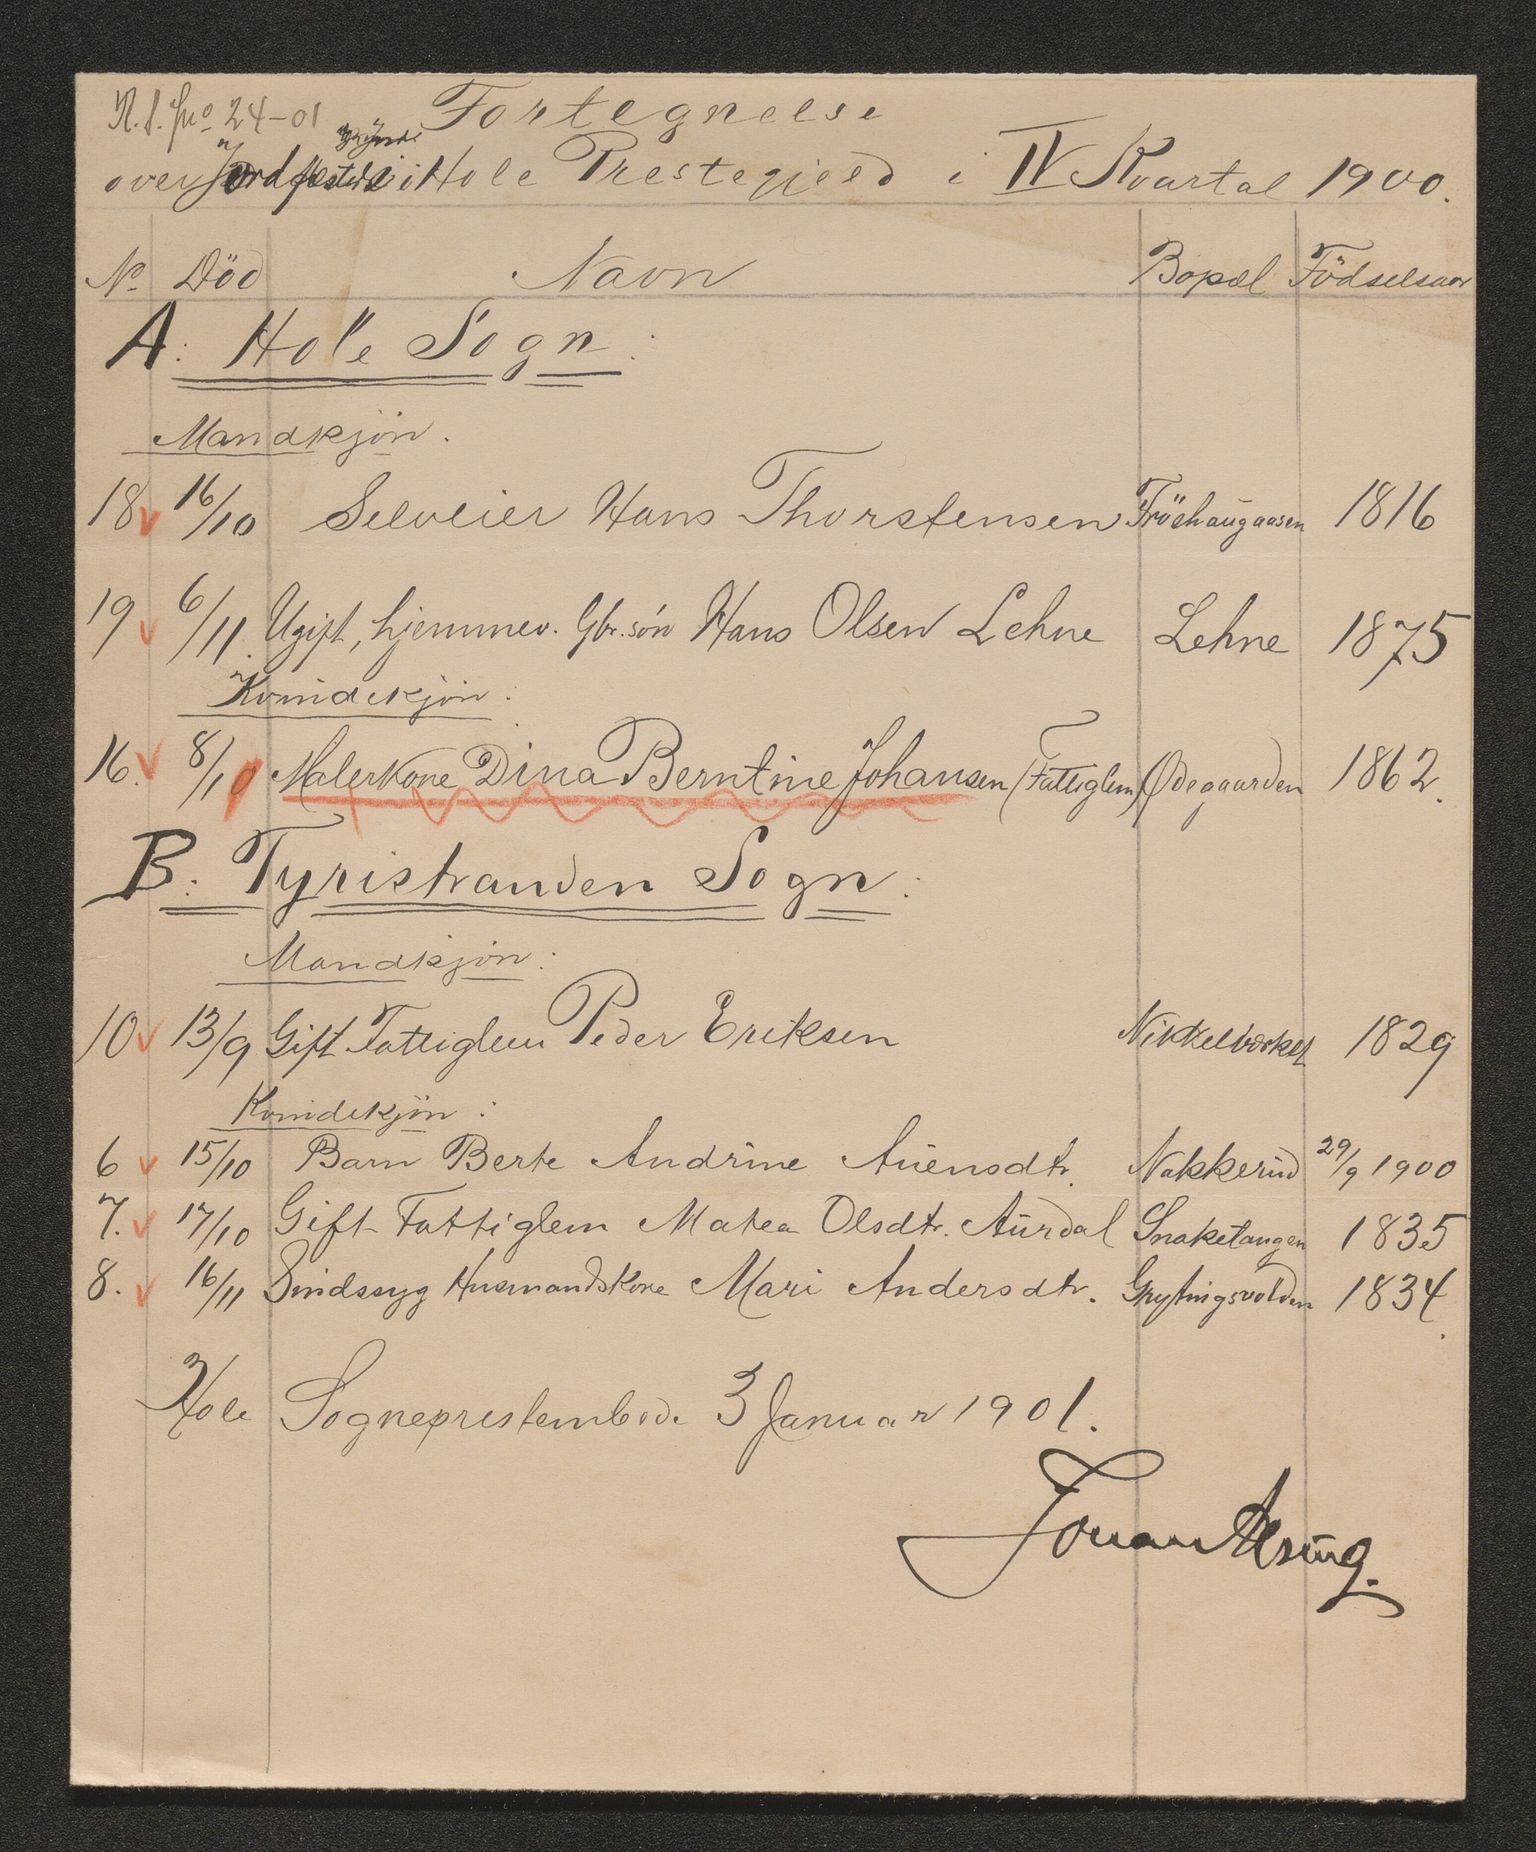 24-01 Fortegnelse
over Jordfæstede i Hole Prestegjeld i IV Kvartal 1900.
No Död Navn Bopæl Födselsaar
A: Hole Sogn:
Mandkjön.
18 16/10 Selveier Hans Thorstensen Fröshaugaasen 1816
19 6/11 Ugift, hjemmev. Gbr.sön Hans Olsen Lehne Lehne 1875
Kvindekjön:
16. 8/10 Malerkone Dina Berntine Johansen (Fattiglem) Ødegaarden 1862.
B: Tyristranden Sogn:
Mandkjön:
10 13/9 Gift Fattiglem Peder Eriksen Nikkelværket 1829
Kvindekjön:
6 15/10 Barn Berte Andrine Auensdtr. Nakkerud 29/9 1900
7. 17/10 Gift Fattiglem Matea Olsdtr. Aurdal Snaketangen 1835
8. 16/11 Sindssyg Husmandskone Mari Andersdtr. Grytingsvolden 1834.
Hole Sogneprestembede 3 Januar 1901.